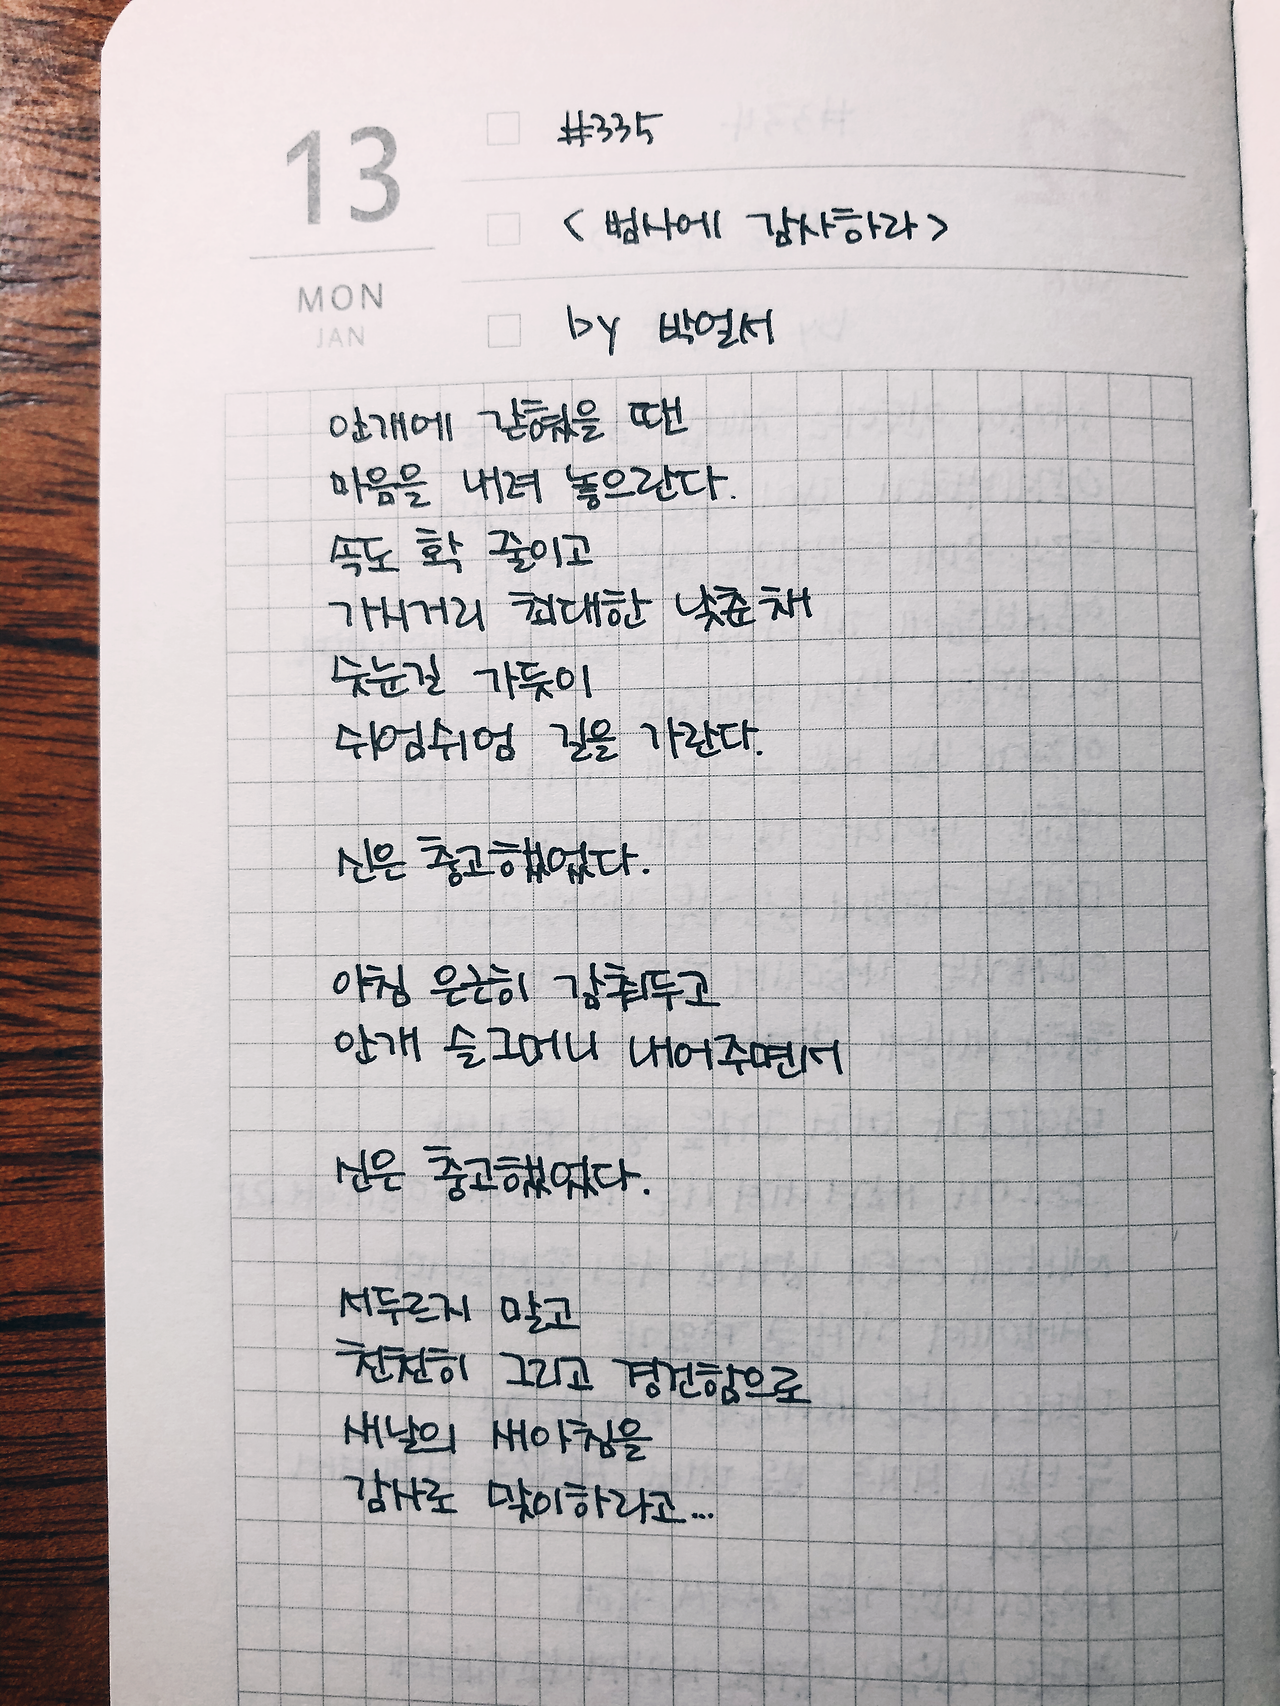 13
MON
JAN
#335
<범사에 감사하라>
by 박얼서
안개에 갇혔을 땐
마음을 내려 놓으란다.
속도 확 줄이고
가시거리 최대한 낮춘채
숫눈길 가듯이
쉬엄쉬엄 길을 가란다.
신은 충고했었다.
아침 은근히 감춰두고
안개 슬그머니 내어주면서
신은 충고했었다.
서두르지 말고
천천히 그리고 경건함으로
새날의 새아침을
감사로 맞이하라고...